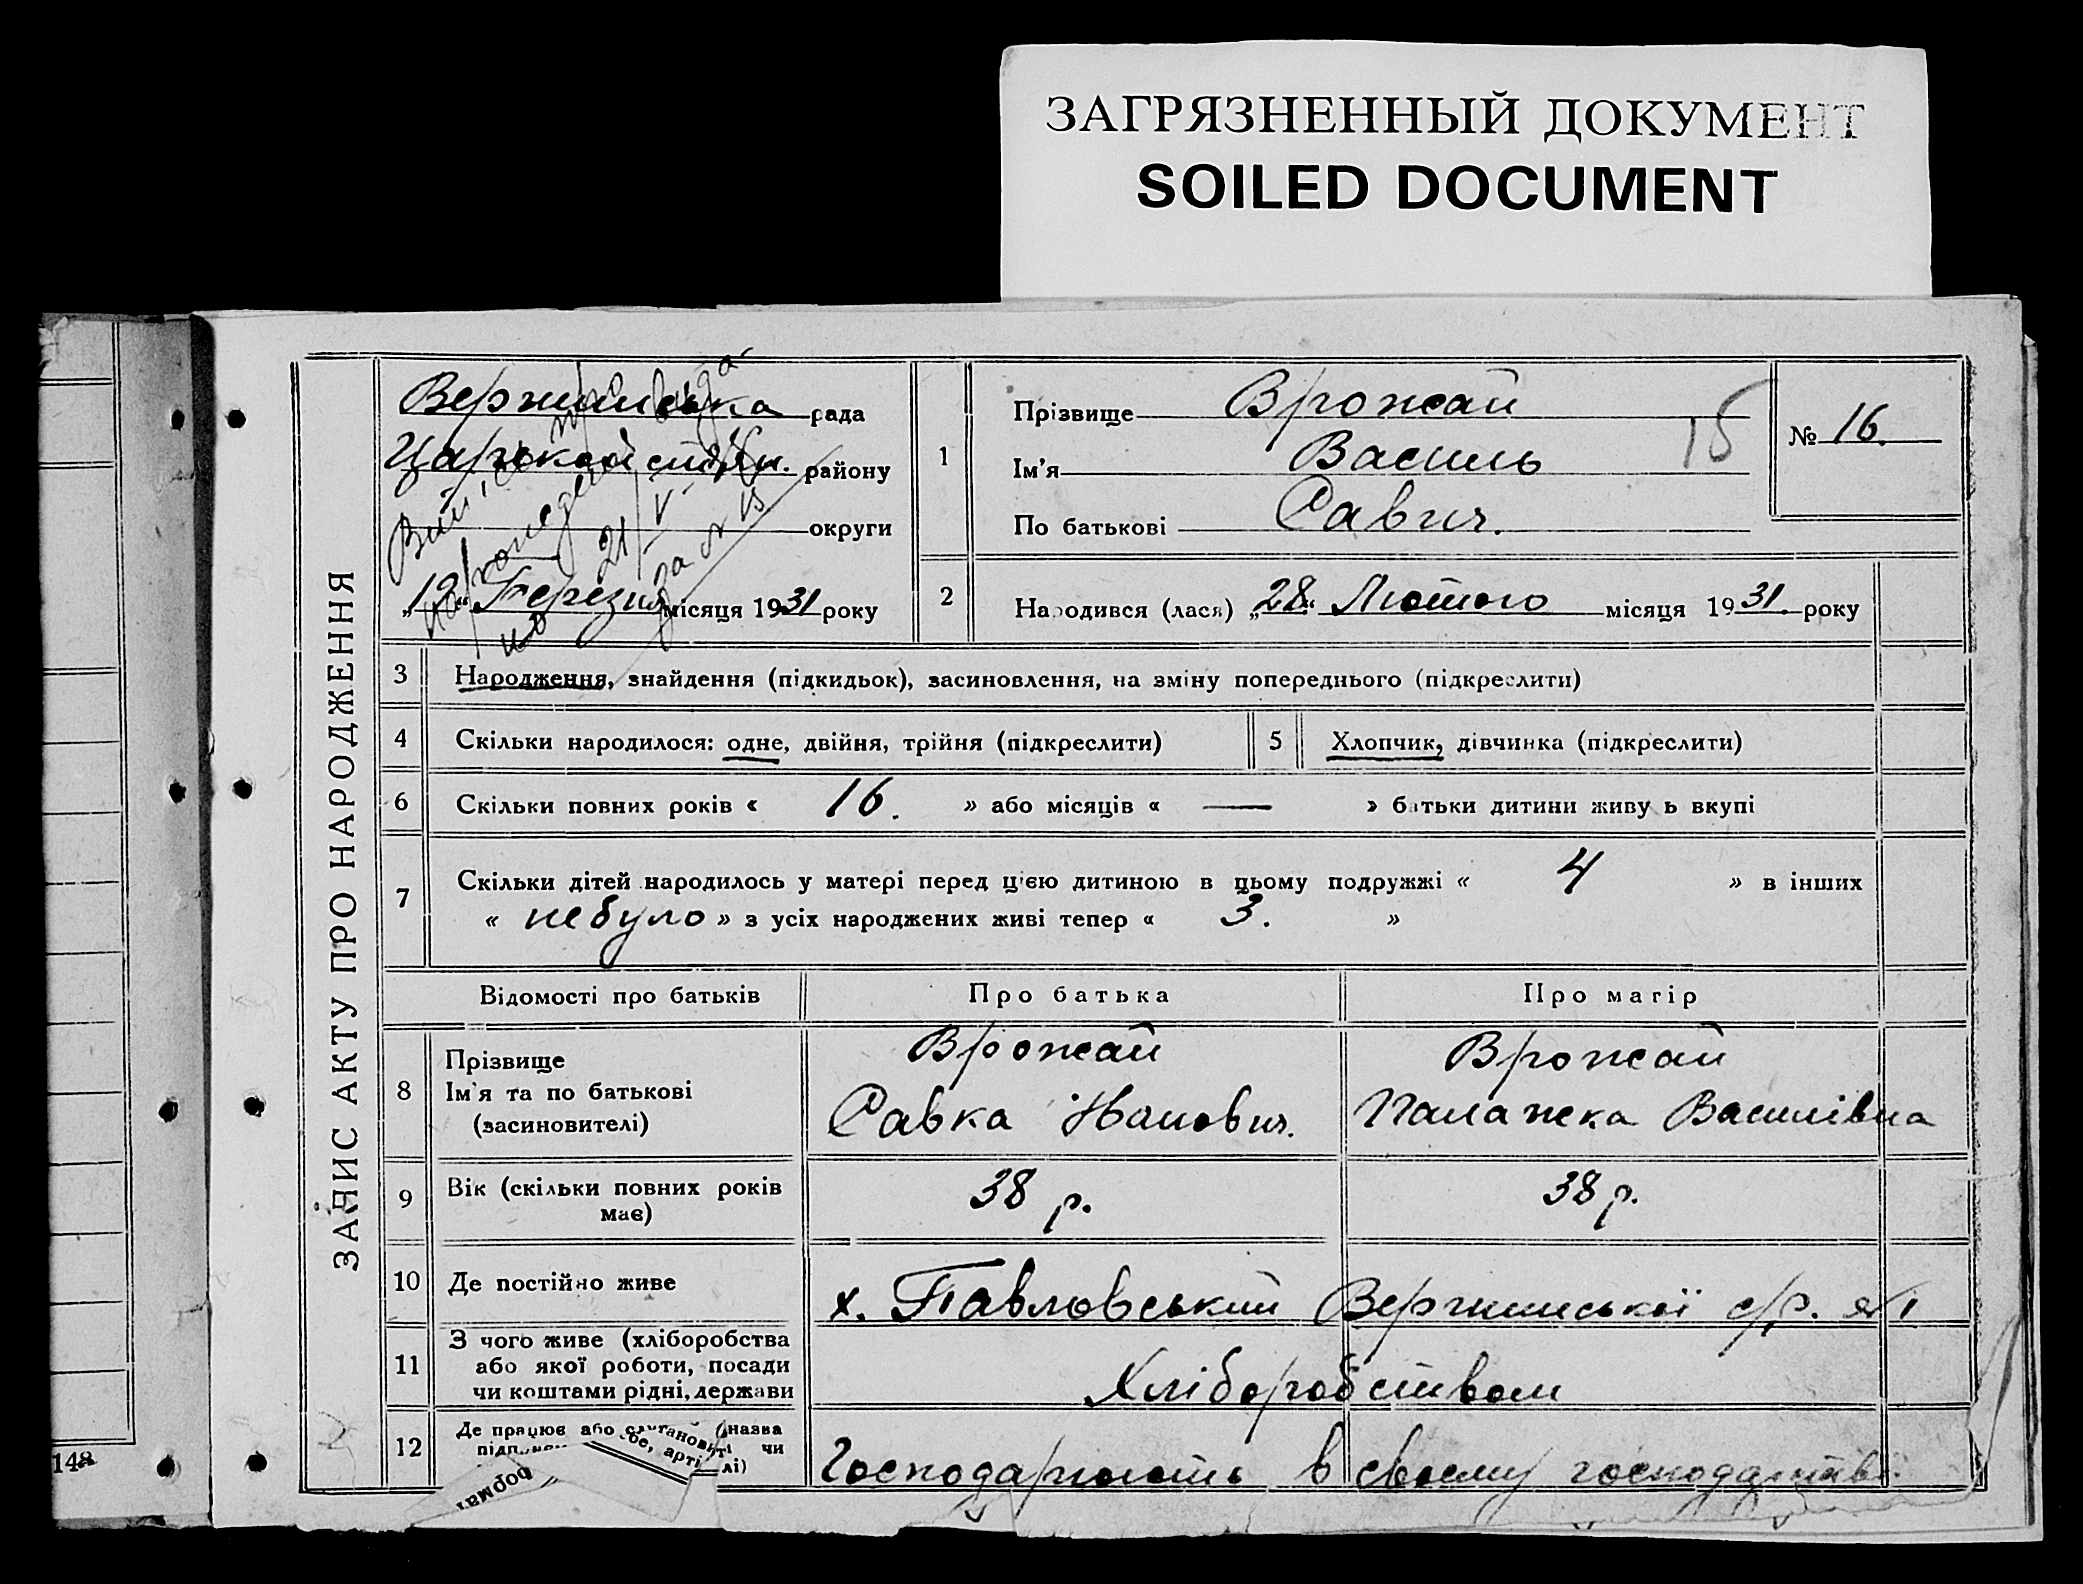 ЗАГРЯЗНЕННЫЙ ДОКУМЕНТ
SOILED DOCUMENT
ЗАПИС АКТУ ПРО НАРОДЖЕННЯ
рада
району
округи
"12" Березня місяця 1931 року
21/V
1
Прізвище Врожай
Ім'я Василь
По батькові Савич.
15
№ 16.
2
Народився (лася) "28" Лютого місяця 1931. року
3 Народження, знайдення (підкидьок), засиновлення, на зміну попереднього (підкреслити)
4 Скільки народилося: одне, двійня, трійня (підкреслити) 5 Хлопчик, дівчинка (підкреслити)
6 Скільки повних років « 16. » або місяців « — » батьки дитини живу ь вкупі
7 Скільки дітей народилось у матері перед цією дитиною в цьому подружжі « 4 » в інших
« небуло » з усіх народжених живі тепер « 3. »
Відомості про батьків Про батька Про матір
8 Прізвище Врожай Врожай
Ім'я та по батькові Савка Іванович. Палажка Василівна
(засиновителі)
9 Вік (скільки повних років 38 р. 38 р.
має)
10 Де постійно живе х. Павловський Вершинської с/р. №1
11 З чого живе (хліборобства
або якої роботи, посади Хліборобством
чи коштами рідні, держави
12 Де працює або (назва
чи
лі)
Господарюють в своєму господарстві.
148